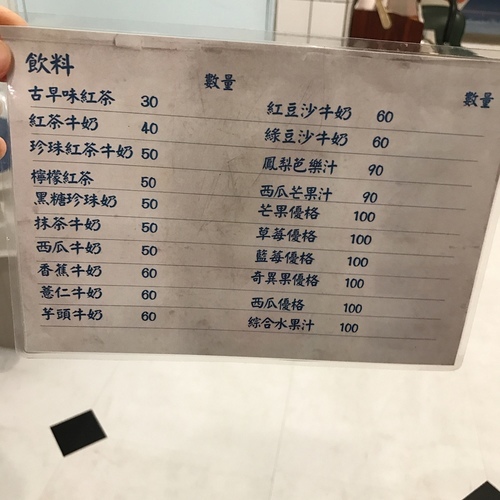 飲料
數量
古早味紅茶 30
紅茶牛奶 40
珍珠紅茶牛奶 50
檸檬紅茶 50
黑糖珍珠奶 50
抹茶牛奶 50
西瓜牛奶 50
香蕉牛奶 60
薏仁牛奶 60
芋頭牛奶 60
數量
紅豆沙牛奶 60
綠豆沙牛奶 60
鳳梨芭樂汁 90
西瓜芒果汁 90
芒果優格 100
草莓優格 100
藍莓優格 100
奇異果優格 100
西瓜優格 100
綜合水果汁 100